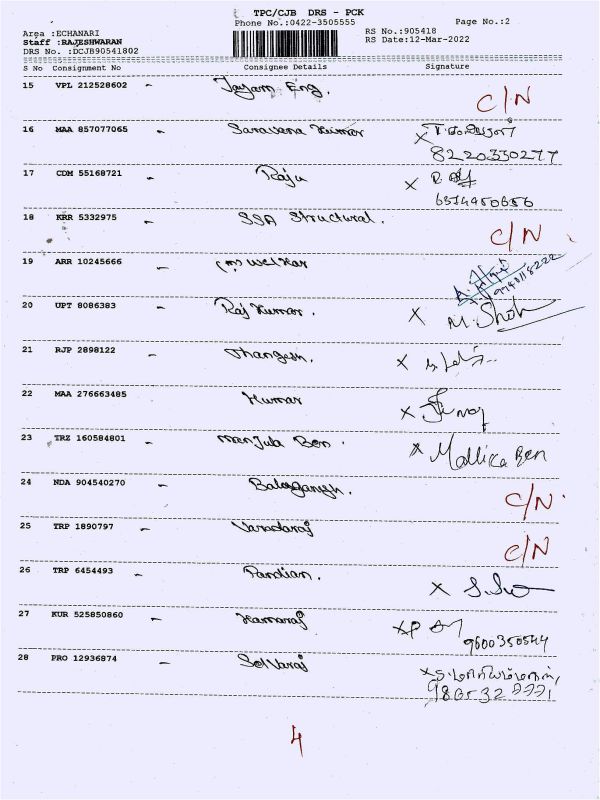 TPC/CJB DRS - PCK
Phone No.:0422-3505555
Page No.:2
Area :ECHANARI
Staff :RAJESHWARAN
DRS No. :DCJB90541802
RS No.:905418
RS Date:12-Mar-2022
S No Consignment No Consignee Details Signature
15 VPL 212528602 - Jayam Eng. C/N
16 MAA 857077065 - Saravana Kumar x
8220330277
17 CDM 55168721 - Raju x
18 KRR 5332975 - SSA Structural. C/N
19 ARR 10245666 -
20 UPT 8086383 - Raj Kumar. x M.
21 RJP 2898122 - Thangesh. x
22 MAA 276663485 Kumar x
23 TRZ 160584801 - Manjula Ben. x Mallika Ben
24 NDA 904540270 - Balaganesh. C/N
25 TRP 1890797 - Varadaraj C/N
26 TRP 6454493 - Pandian. x
27 KUR 525850860 - Kamaraj x
9600350544
28 PRO 12936874 - Selvaraj x
4